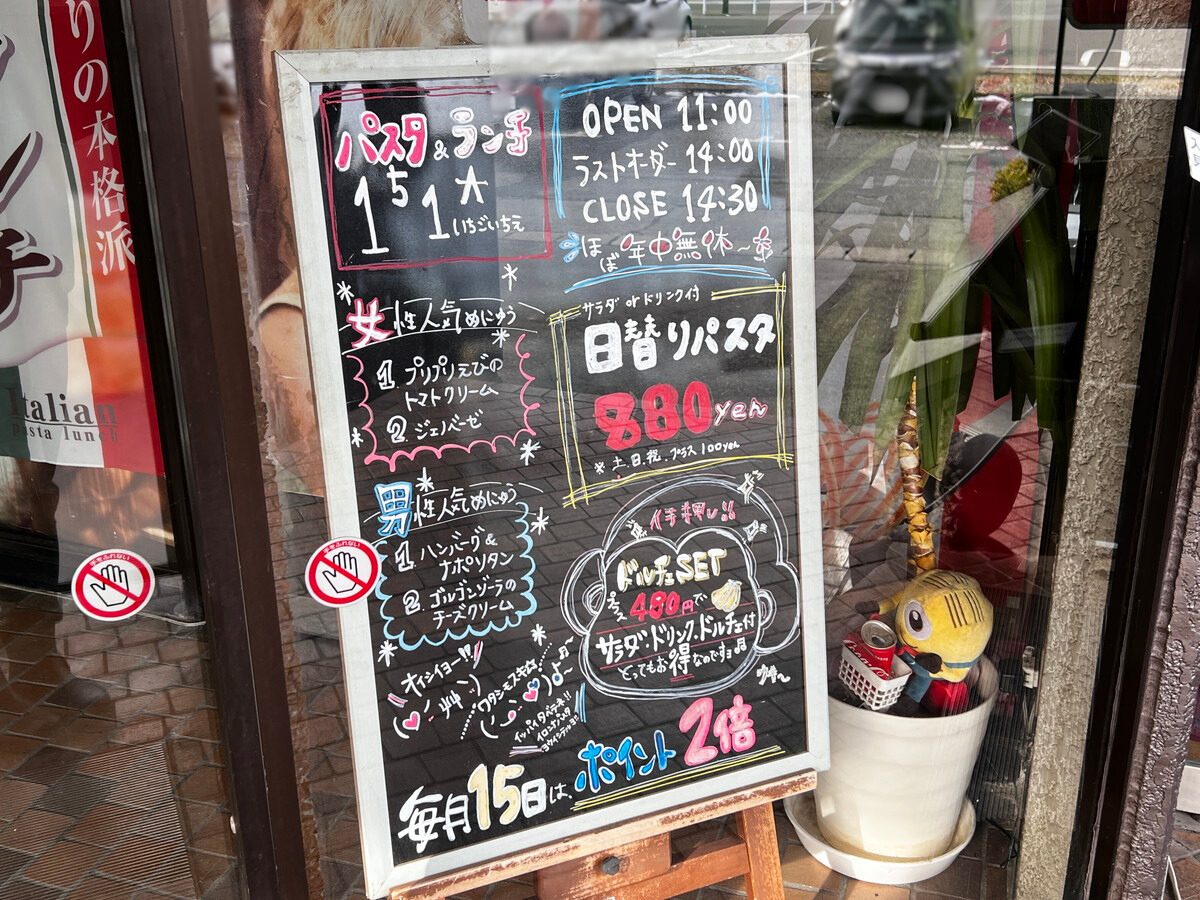 りの本格派
Italian
pasta lunch
パスタ&ランチ
151A
いちごいちえ
OPEN 11:00
ラストオーダー 14:00
CLOSE 14:30
ほぼ年中無休～
女性人気めにゅう
1. プリプリえびの
トマトクリーム
2. ジェノベーゼ
男性人気めにゅう
1 ハンバーグ&
ナポリタン
2. ゴルゴンゾーラの
チーズクリーム
サラダ or ドリンク付
日替りパスタ
880yen
※土.日.祝.プラス100yen
イチ押し!!
ドルチェSET
プラス480円で
サラダ・ドリンク・ドルチェ付
とってもお得なのですョ
オイシイヨー!!
ワタシモスキダ
イッパイタベテネ!!
毎月15日は、ポイント2倍
手をふれない
手をふれない